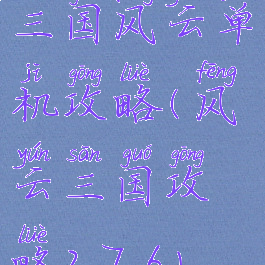 三国风云单
jī gōng lüè fēng
机攻略(风
yún sān guó gōng
云三国攻
lüè
略2.7.6)